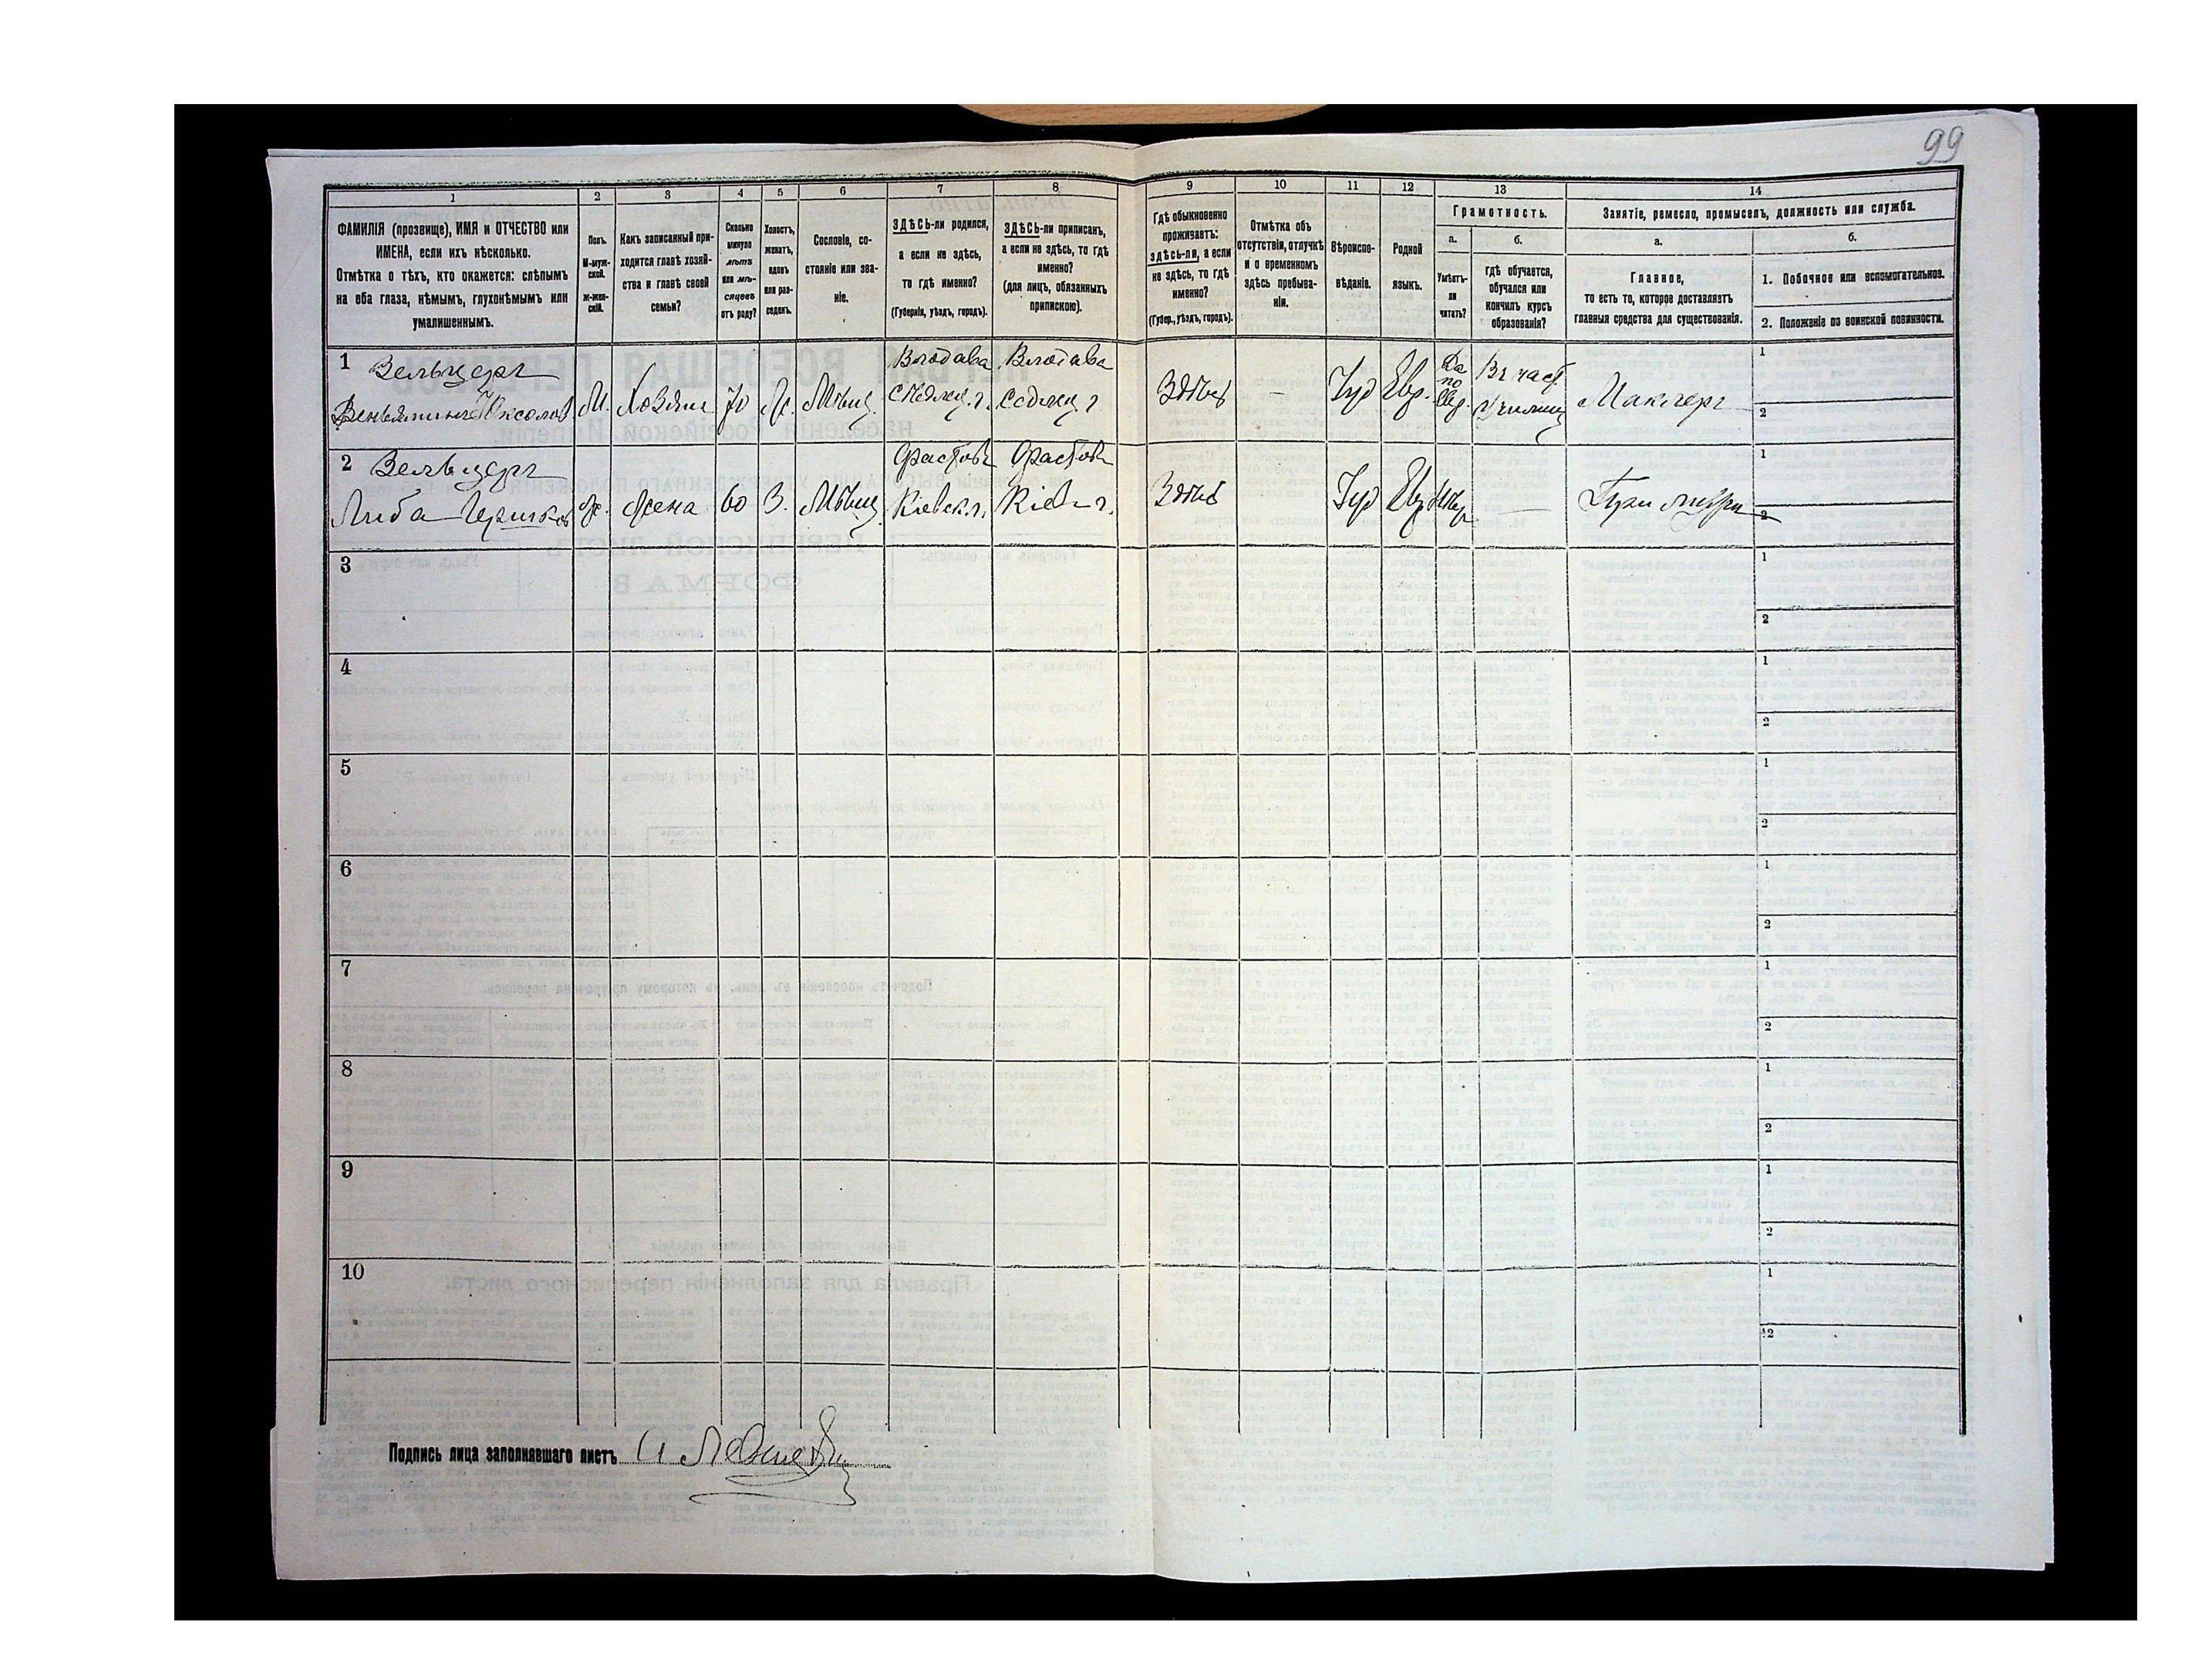 99
1
2
3
4
5
6
7
8
9
10
11
12
13
14
ФАМИЛІЯ (прозвище), ИМЯ и ОТЧЕСТВО или
ИМЕНА, если ихъ нѣсколько.
Отмѣтка о тѣхъ, кто окажется: слѣпымъ
на оба глаза, нѣмымъ, глухонѣмымъ или
умалишеннымъ.
Полъ.
М-муж-
ской.
ж-жен-
скій.
Какъ записанный при-
ходится главѣ хозяй-
ства и главѣ своей
семьи?
Сколько
минуло
лѣтъ
или мѣ-
сяцевъ
отъ роду?
Холостъ,
женатъ,
вдовъ
или раз-
веденъ.
Сословіе, со-
стояніе или зва-
ніе.
ЗДѢСЬ-ли родился,
а если не здѣсь,
то гдѣ именно?
(Губернія, уѣздъ, городъ).
ЗДѢСЬ-ли приписанъ,
а если не здѣсь, то гдѣ
именно?
(для лицъ, обязанныхъ
припискою).
Гдѣ обыкновенно
проживаетъ:
здѣсь-ли, а если
не здѣсь, то гдѣ
именно?
(Губер., уѣздъ, городъ).
Отмѣтка объ
отсутствіи, отлучкѣ
и о временномъ
здѣсь пребыва-
ніи.
Вѣроиспо-
вѣданіе.
Родной
языкъ.
Грамотность.
а.
Умѣетъ-
ли
читать?
б.
гдѣ обучается,
обучался или
кончилъ курсъ
образованія?
Занятіе, ремесло, промыселъ, должность или служба.
а.
Главное,
то есть то, которое доставляетъ
главныя средства для существованія.
б.
1. Побочное или вспомогательное.
2. Положеніе по воинской повинности.
1 Вельцеръ
Веньяминъ
М.
Хозяин
70
Ж.
Мѣщ.
Влодава
Сѣдлец. г.
Влодава
Седлец г
Здѣсь
—
Іуд
Евр.
Да
по
Евр.
Въ част
Училищ
Маклеръ
1
2
2 Вельцеръ
Либа
Ж.
Жена
60
З.
Мѣщ.
Фастовъ
Кіевск. г.
Фастовъ
Кіев г.
Здѣсь
Іуд
Евр
—
При мужѣ
1
2
3
1
2
4
1
2
5
1
2
6
1
2
7
1
2
8
1
2
9
1
2
10
1
2
Подпись лица заполнявшаго листъ